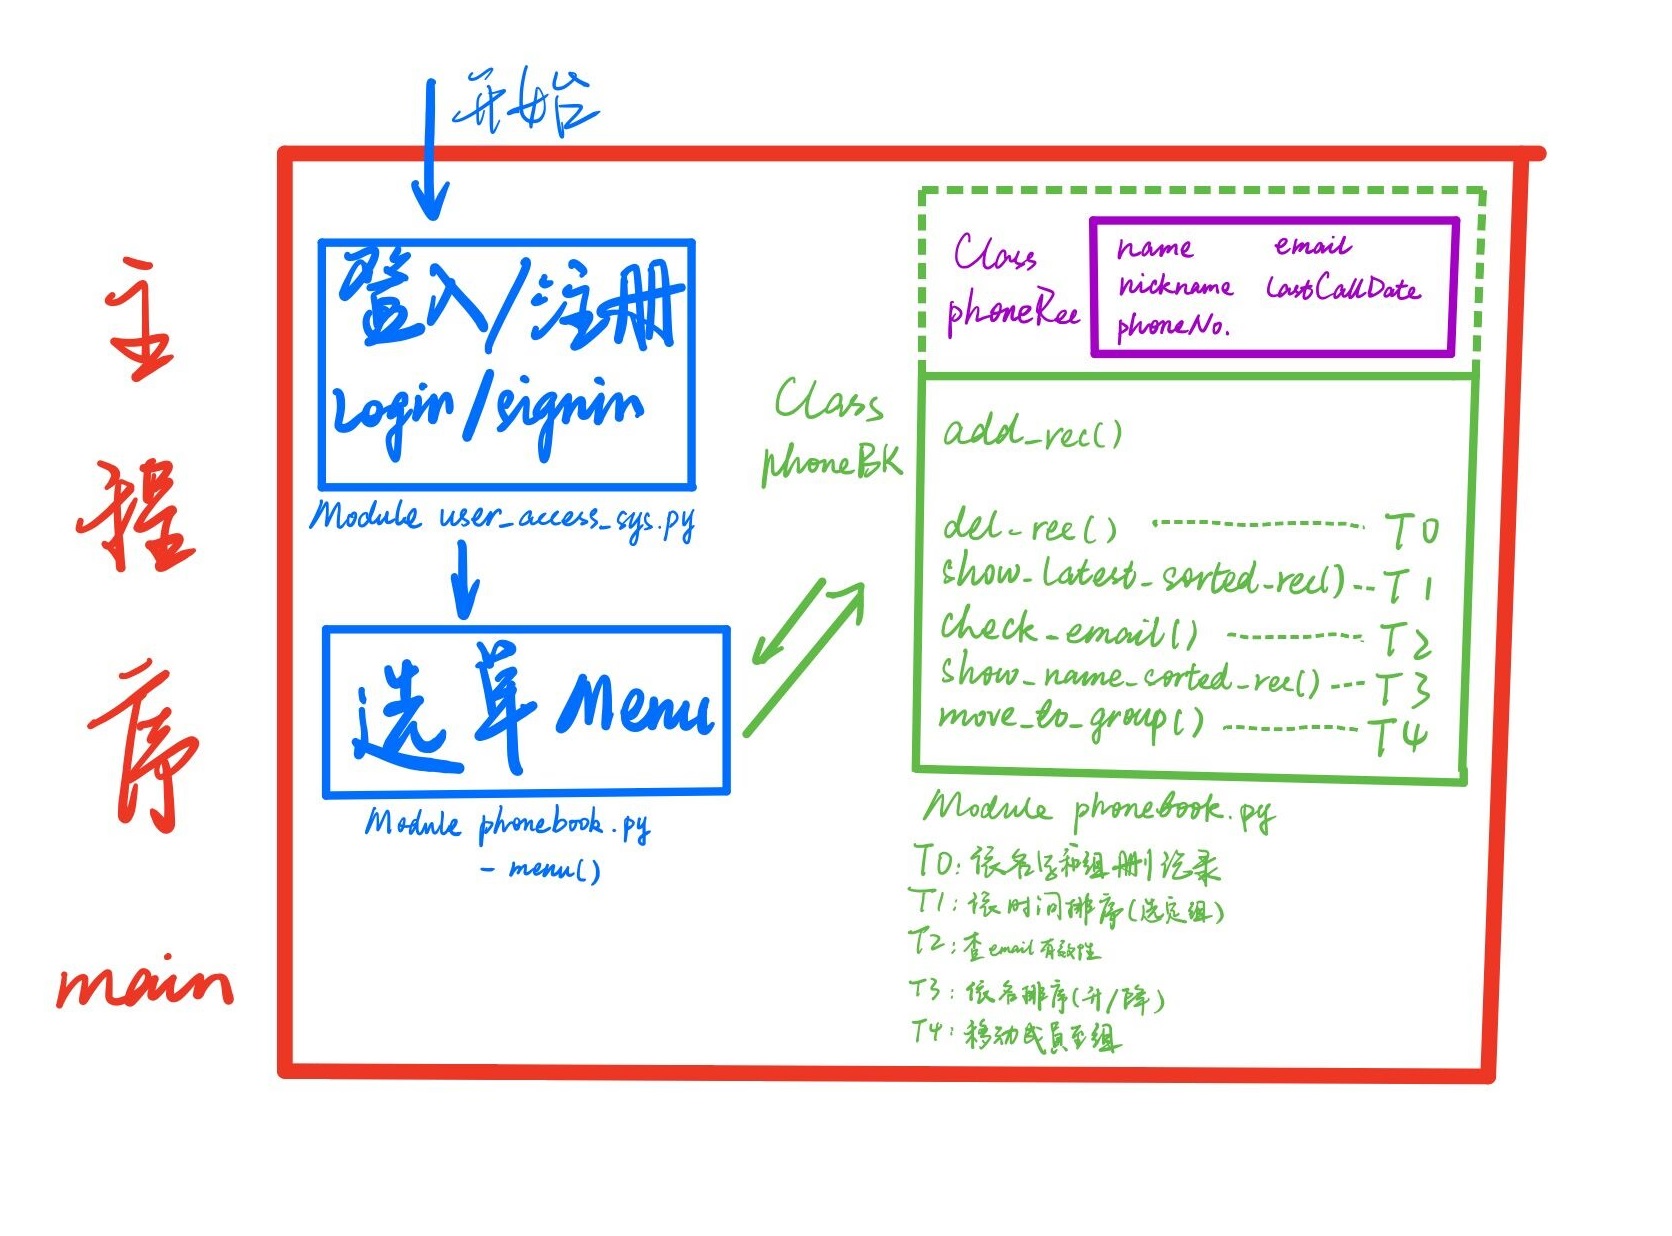 开始
主程序
main
登入/注册
Login/signin
Module user_access_sys.py
选单 Menu
Module phonebook.py
- menu()
Class
phoneBK
Class
phoneRec
name email
nickname LastCallDate
phoneNo.
add_rec()
del_rec() T0
show_latest_sorted_rec() T1
check_email() T2
show_name_sorted_rec() T3
move_to_group() T4
Module phonebook.py
T0: 依名字和组删记录
T1: 依时间排序(选定组)
T2: 查email有效性
T3: 依名排序(升/降)
T4: 移动成員至组